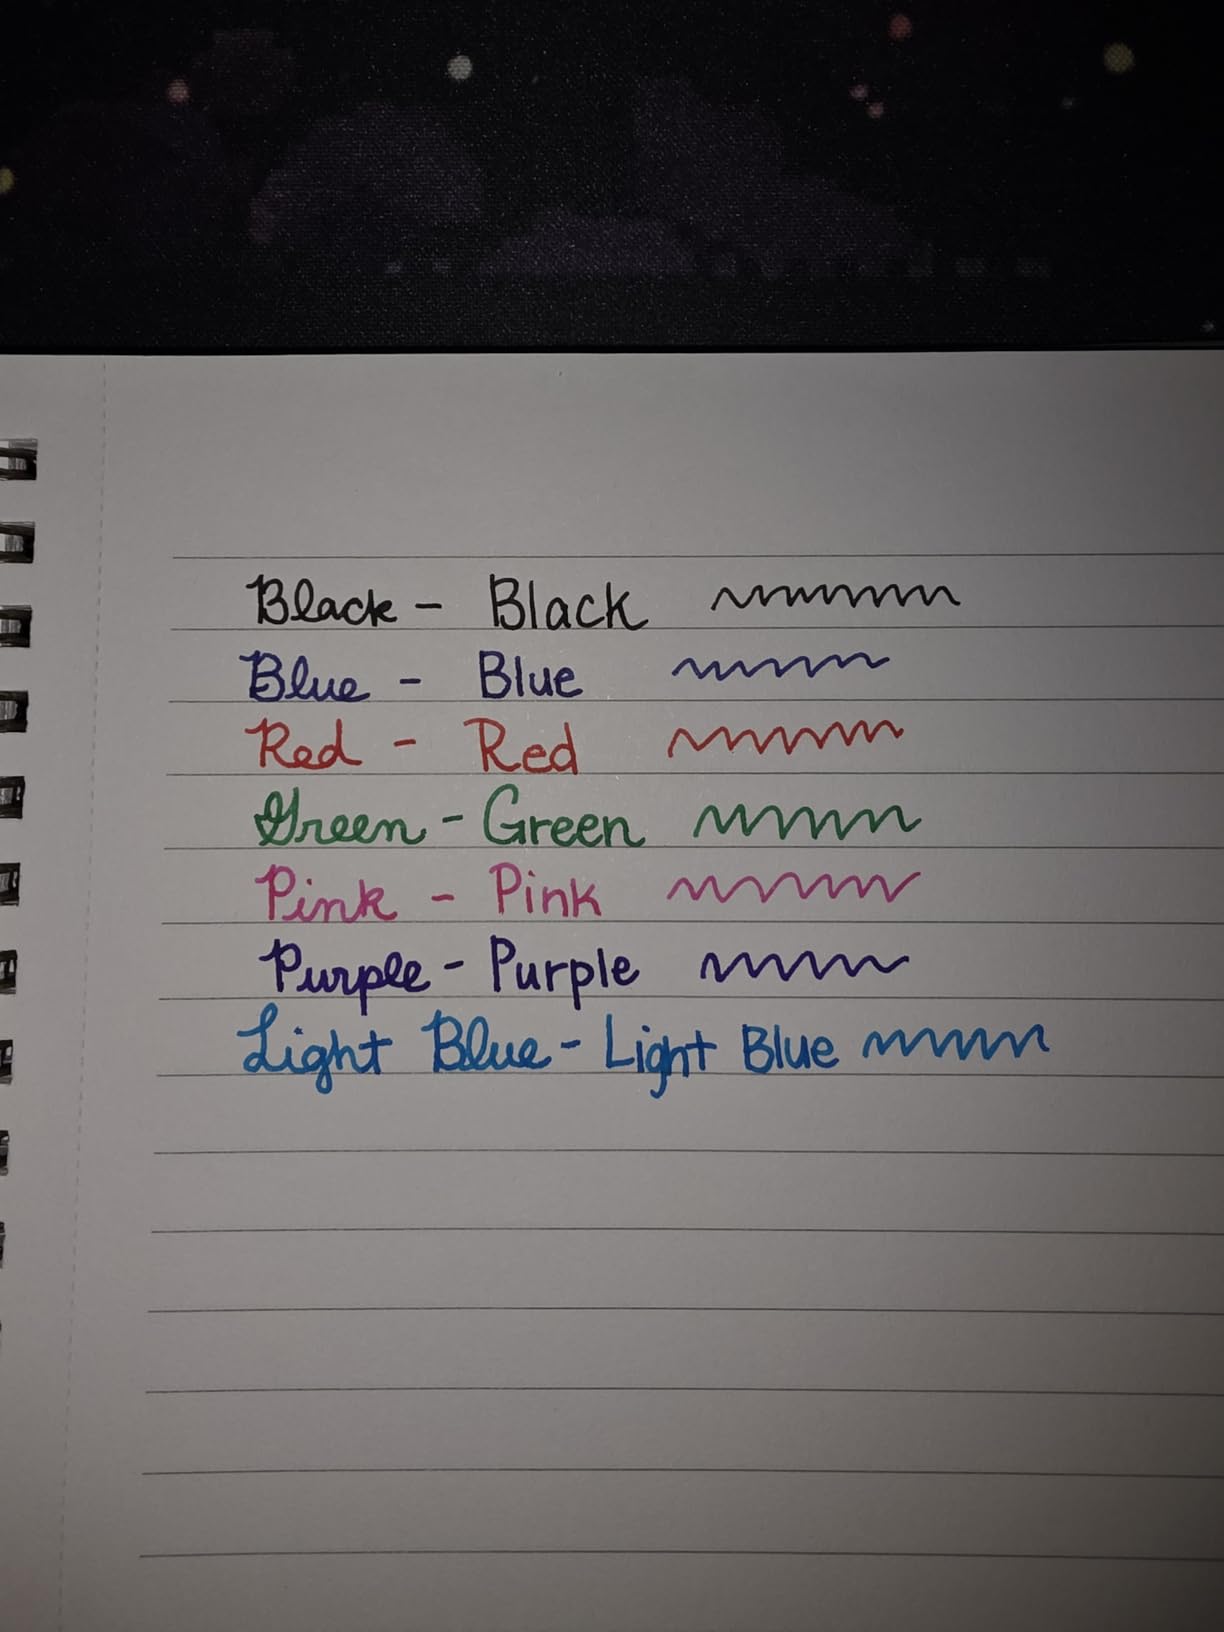 Black - Black
Blue - Blue
Red - Red
Green - Green
Pink - Pink
Purple - Purple
Light Blue - Light Blue